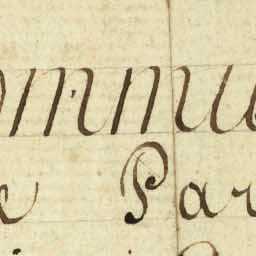 ommu
e Par